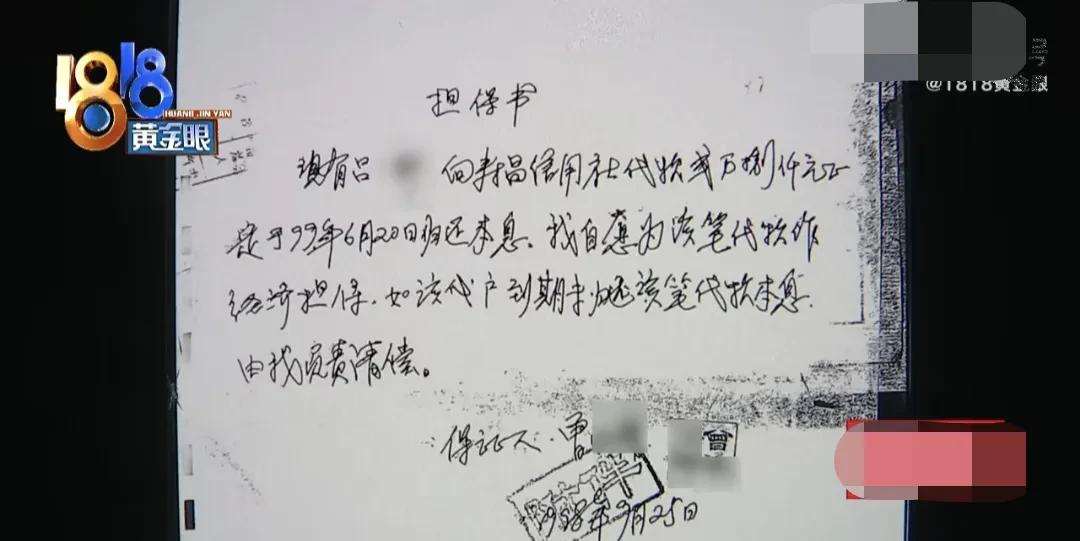 1818
HUANG JIN YAN
黄金眼
@1818黄金眼
担保书
现有吕 向寿昌信用社代款贰万捌仟元正
定于99年6月20日归还本息。我自愿为该笔代款作
经济担保,如该代户到期未归还该笔代款本息,
由我负责清偿。
保证人:曾
曾
附件
1998年9月25日